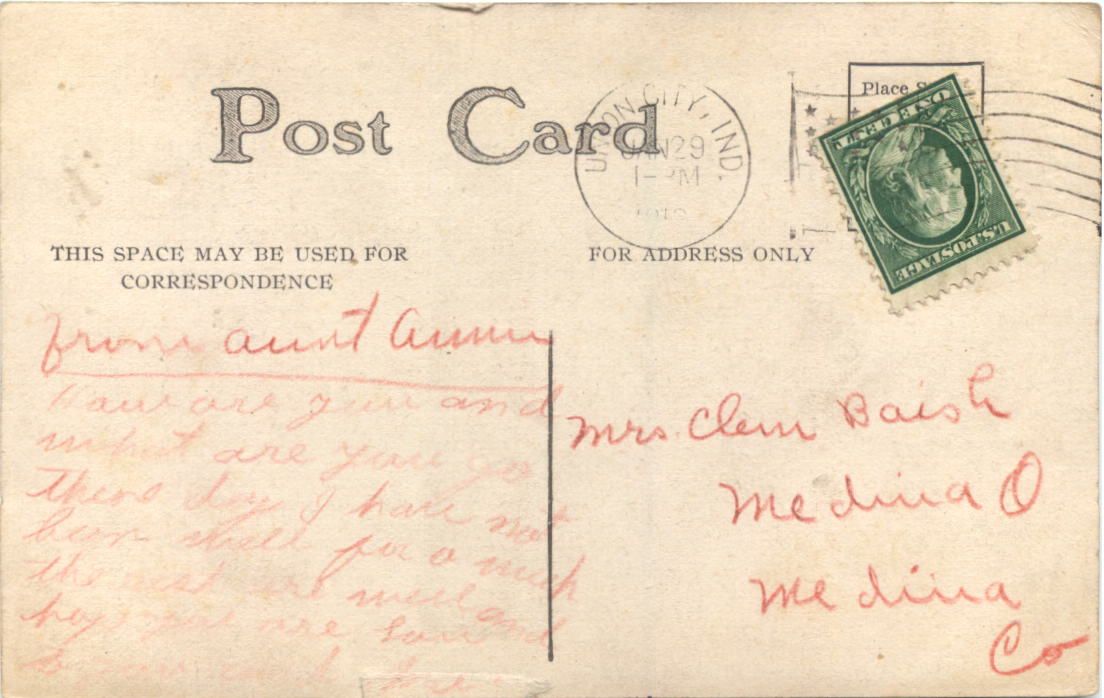 Post Card
UNION CITY, IND.
JAN 29
1-PM
Place S
ONE CENT
U.S. POSTAGE
THIS SPACE MAY BE USED FOR
CORRESPONDENCE
FOR ADDRESS ONLY
from aunt Annie
How are you and
what are you
these day I have not
been well for a week
the rest are well and
hope you are
Mrs. Clem Baish
Medina O
Medina
Co